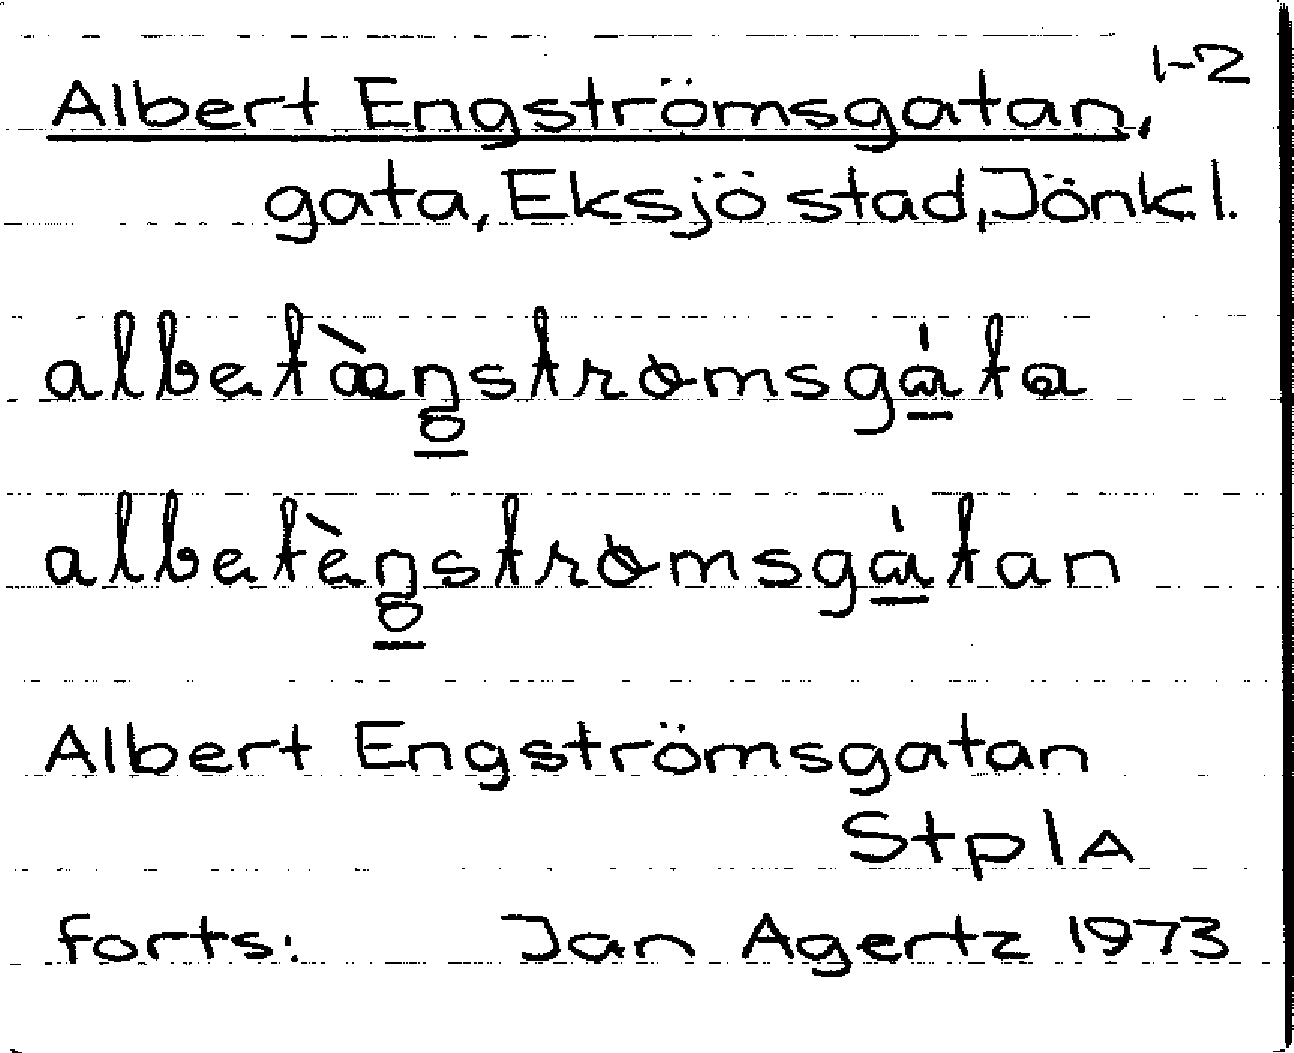 1-2
Albert Engströmsgatan,
gata, Eksjö stad, Jönk.l.
albetæ̀ŋstrømsgɑ́ta
albetèŋstrømsgɑ́tan
Albert Engströmsgatan
StplA
forts: Jan Agertz 1973